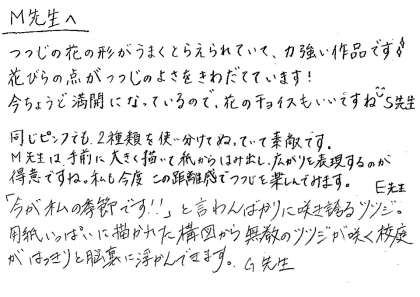 M先生へ
つつじの花の形がうまくとらえられていて、力強い作品です!
花びらの点がつつじのよさをきわだてています!
今ちょうど満開になっているので、花のチョイスもいいですね S先生
同じピンクでも、2種類を使い分けてぬっていて素敵です。
M先生は、手前に大きく描いて紙からはみ出し、広がりを表現するのが
得意ですね。私も今度この距離感でつつじを楽しんでみます。 E先生
「今が私の季節です!!」と言わんばかりに咲き誇るツツジ。
用紙いっぱいに描かれた構図から無数のツツジが咲く校庭
がはっきりと脳裏に浮かんできます。 G先生